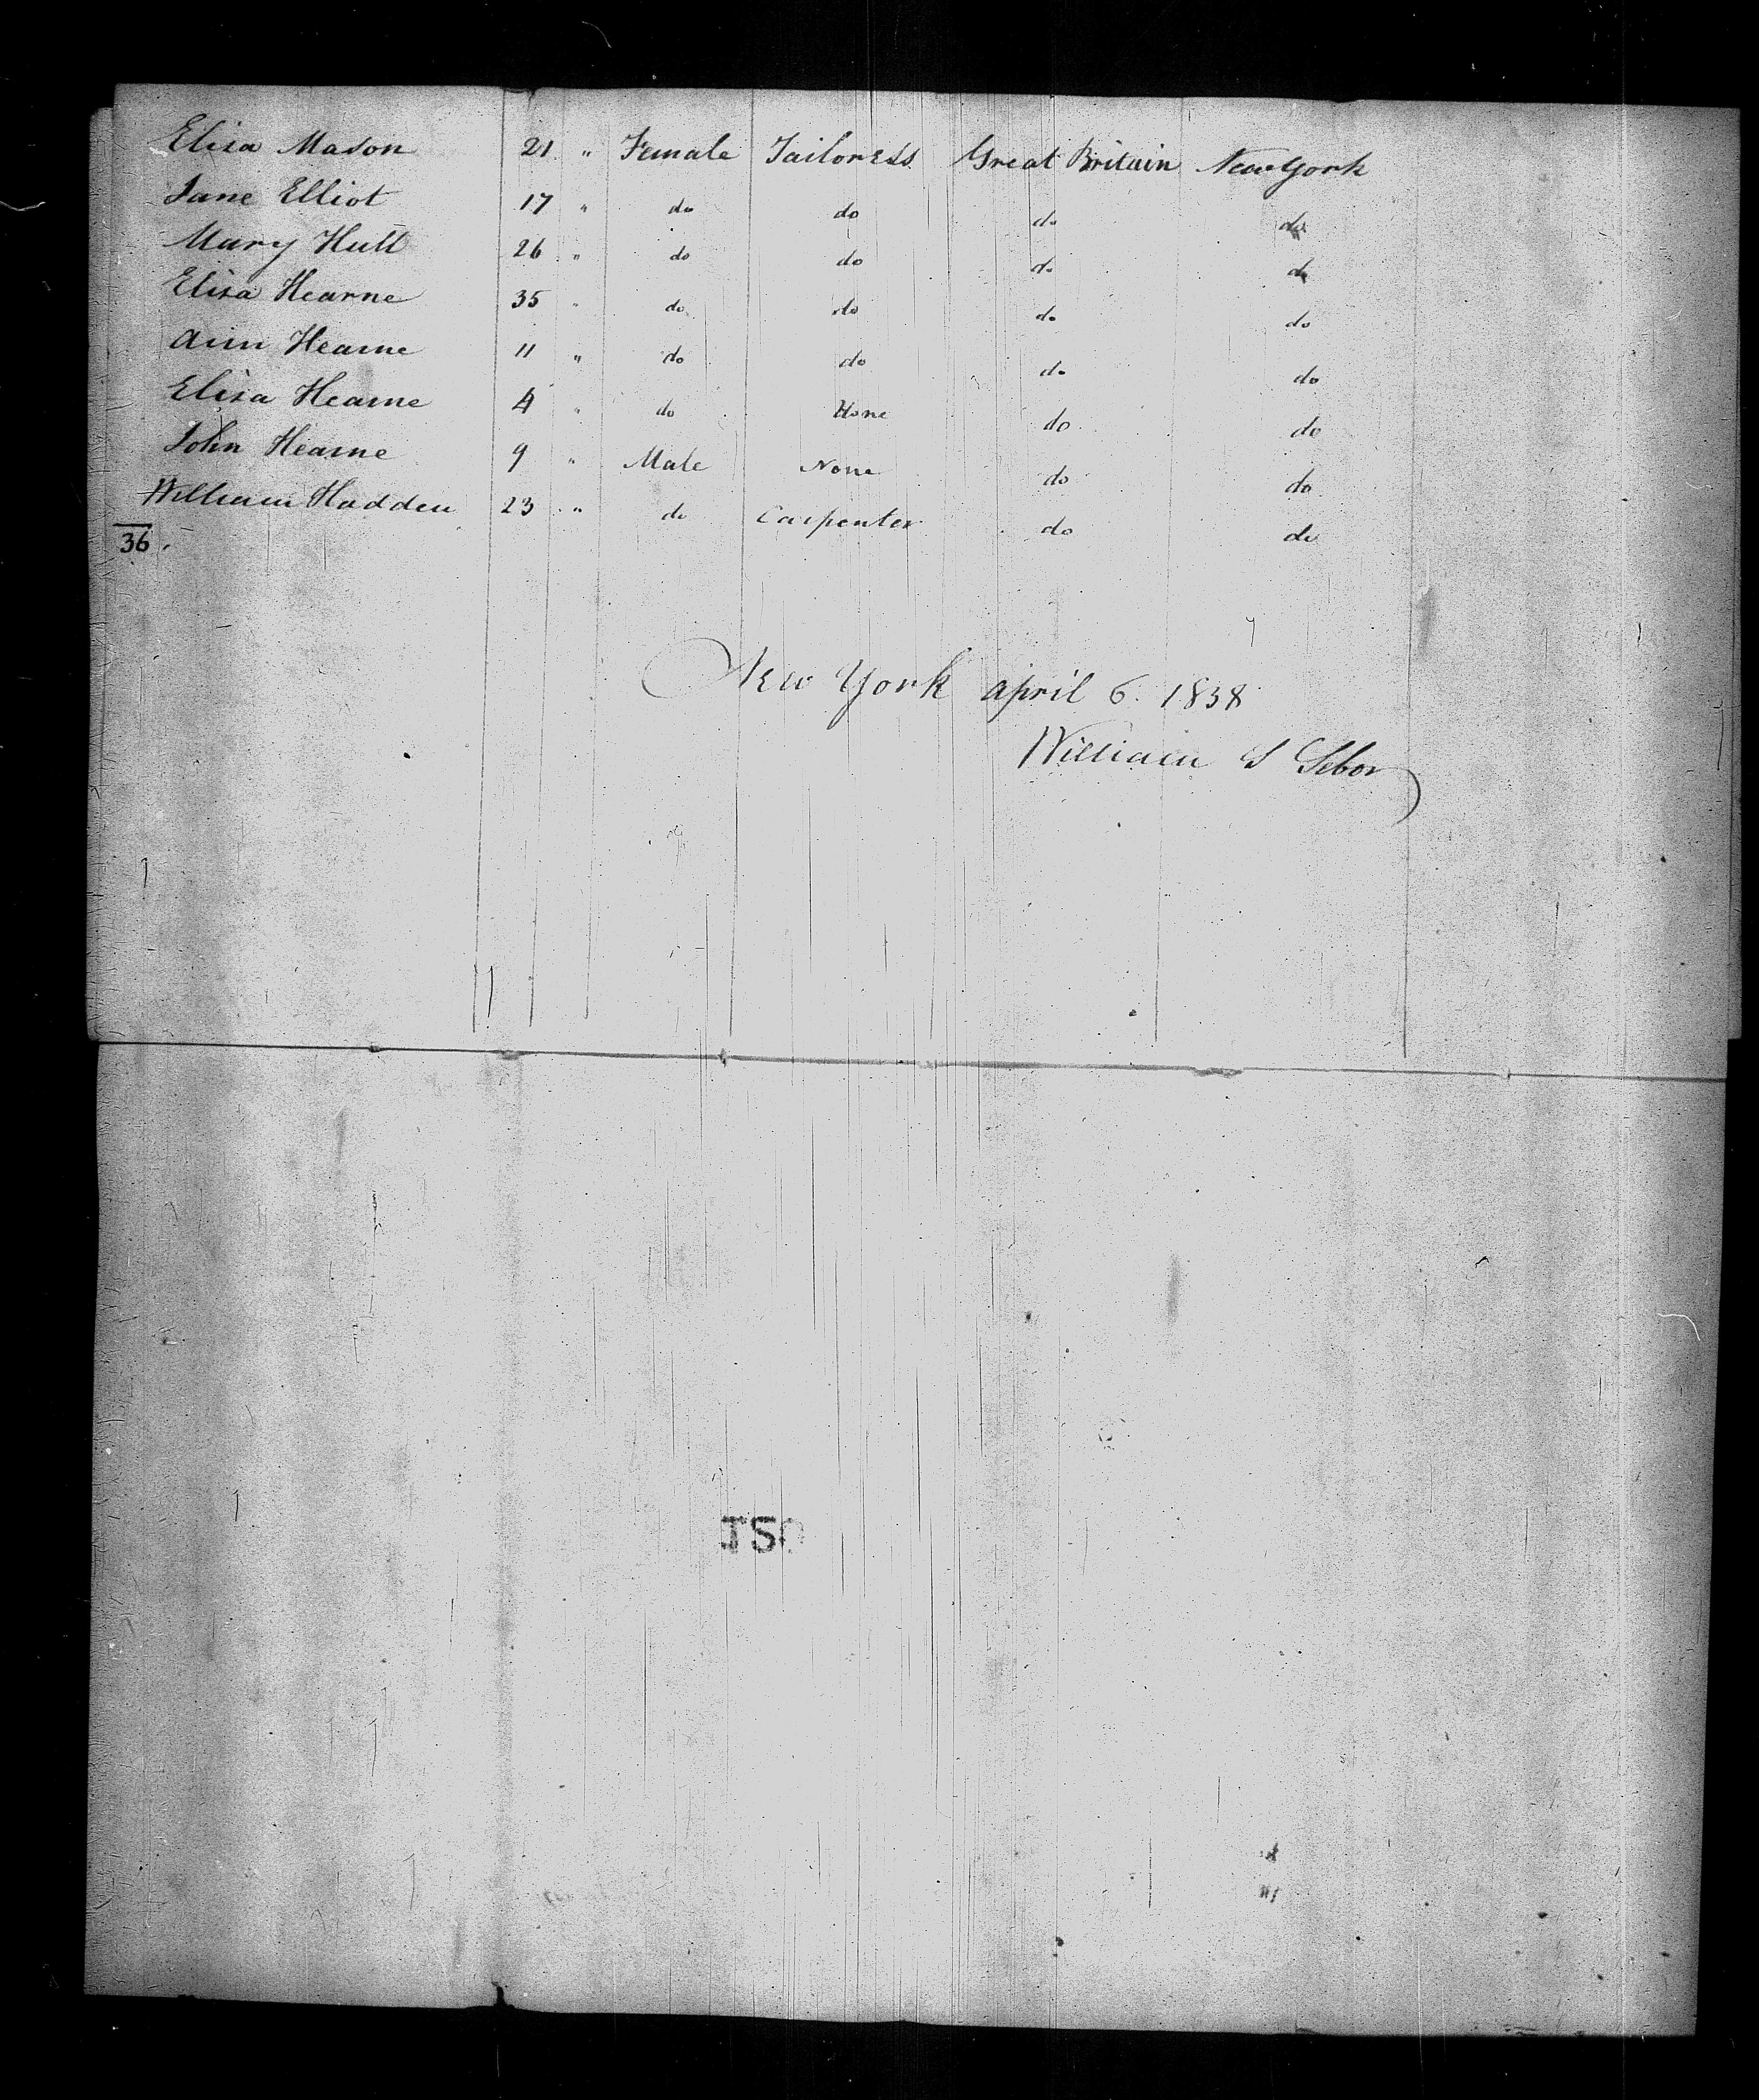 Eliza Mason 21 " Female Tailoress Great Britain New York
Jane Elliot 17 " do do do do
Mary Hull 26 " do do do do
Eliza Hearne 35 " do do do do
Ann Hearne 11 " do do do do
Eliza Hearne 4 " do None do do
John Hearne 9 " Male None do do
William Hadden 23 " do Carpenter do do
36.
New York april 6. 1838
William S Sebor